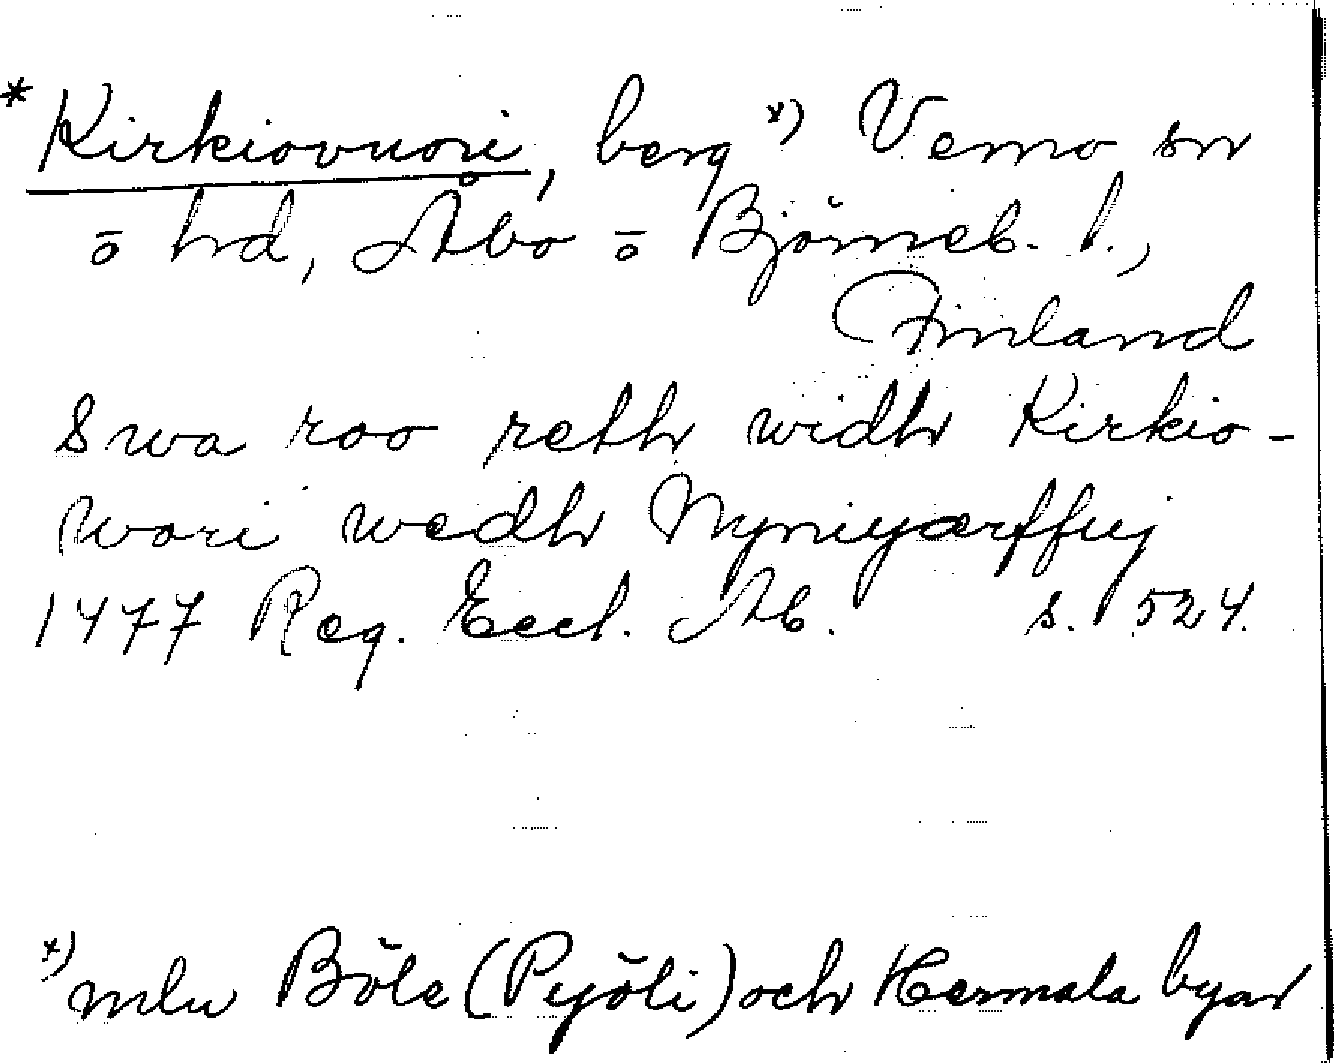 * Kirkiovuori, berg x) Vemo sn
o hd, Åbo o Björneb. l.,
Finland
Swa roo reth widh Kirkio-
wori wedh Nyniyærffuj
1477 Reg. Eccl. Ab. s. 524.
x) mlu Böle (Pyöli) och Hermala byar